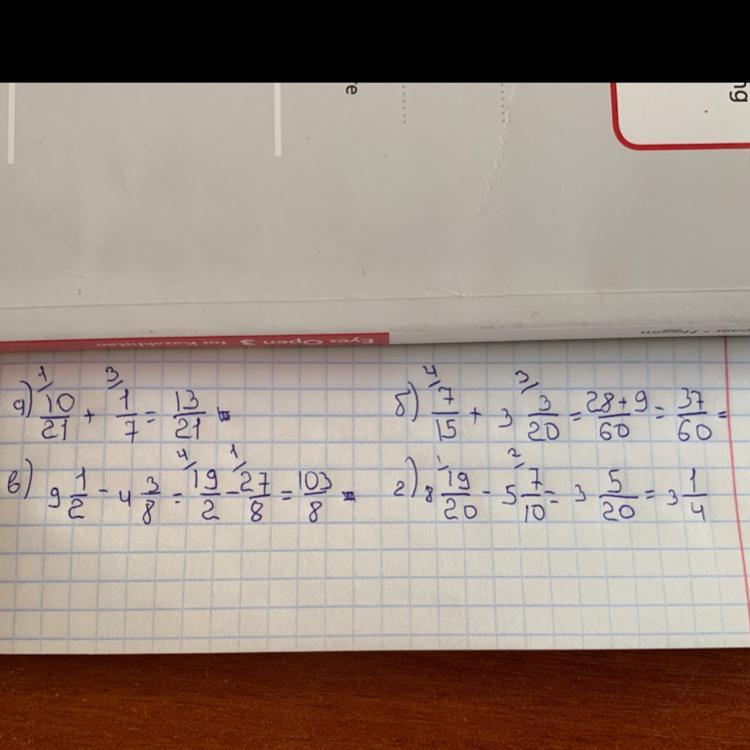 ng
e
Eyes Open 3 for Kazakhstan
а) 10/21 + 1/7 = 13/21
1 3
б) 7/15 + 3 3/20 = 28+9/60 = 37/60 =
4 3
в) 9 1/2 - 4 3/8 = 19/2 - 27/8 = 103/8 -
4 1
г) 8 19/20 - 5 7/10 = 3 5/20 = 3 1/4
1 2